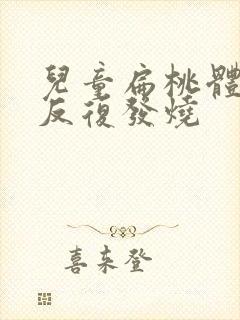 兒童扁桃體
反復發燒
喜来登